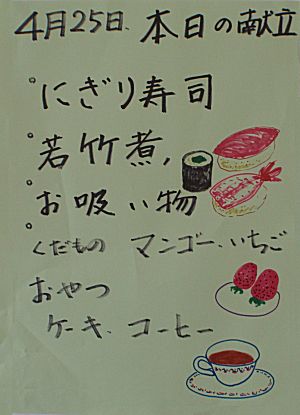 4月25日、本日の献立
。にぎり寿司
。若竹煮、
。お吸い物
くだもの マンゴー、いちご
おやつ
ケーキ、コーヒー